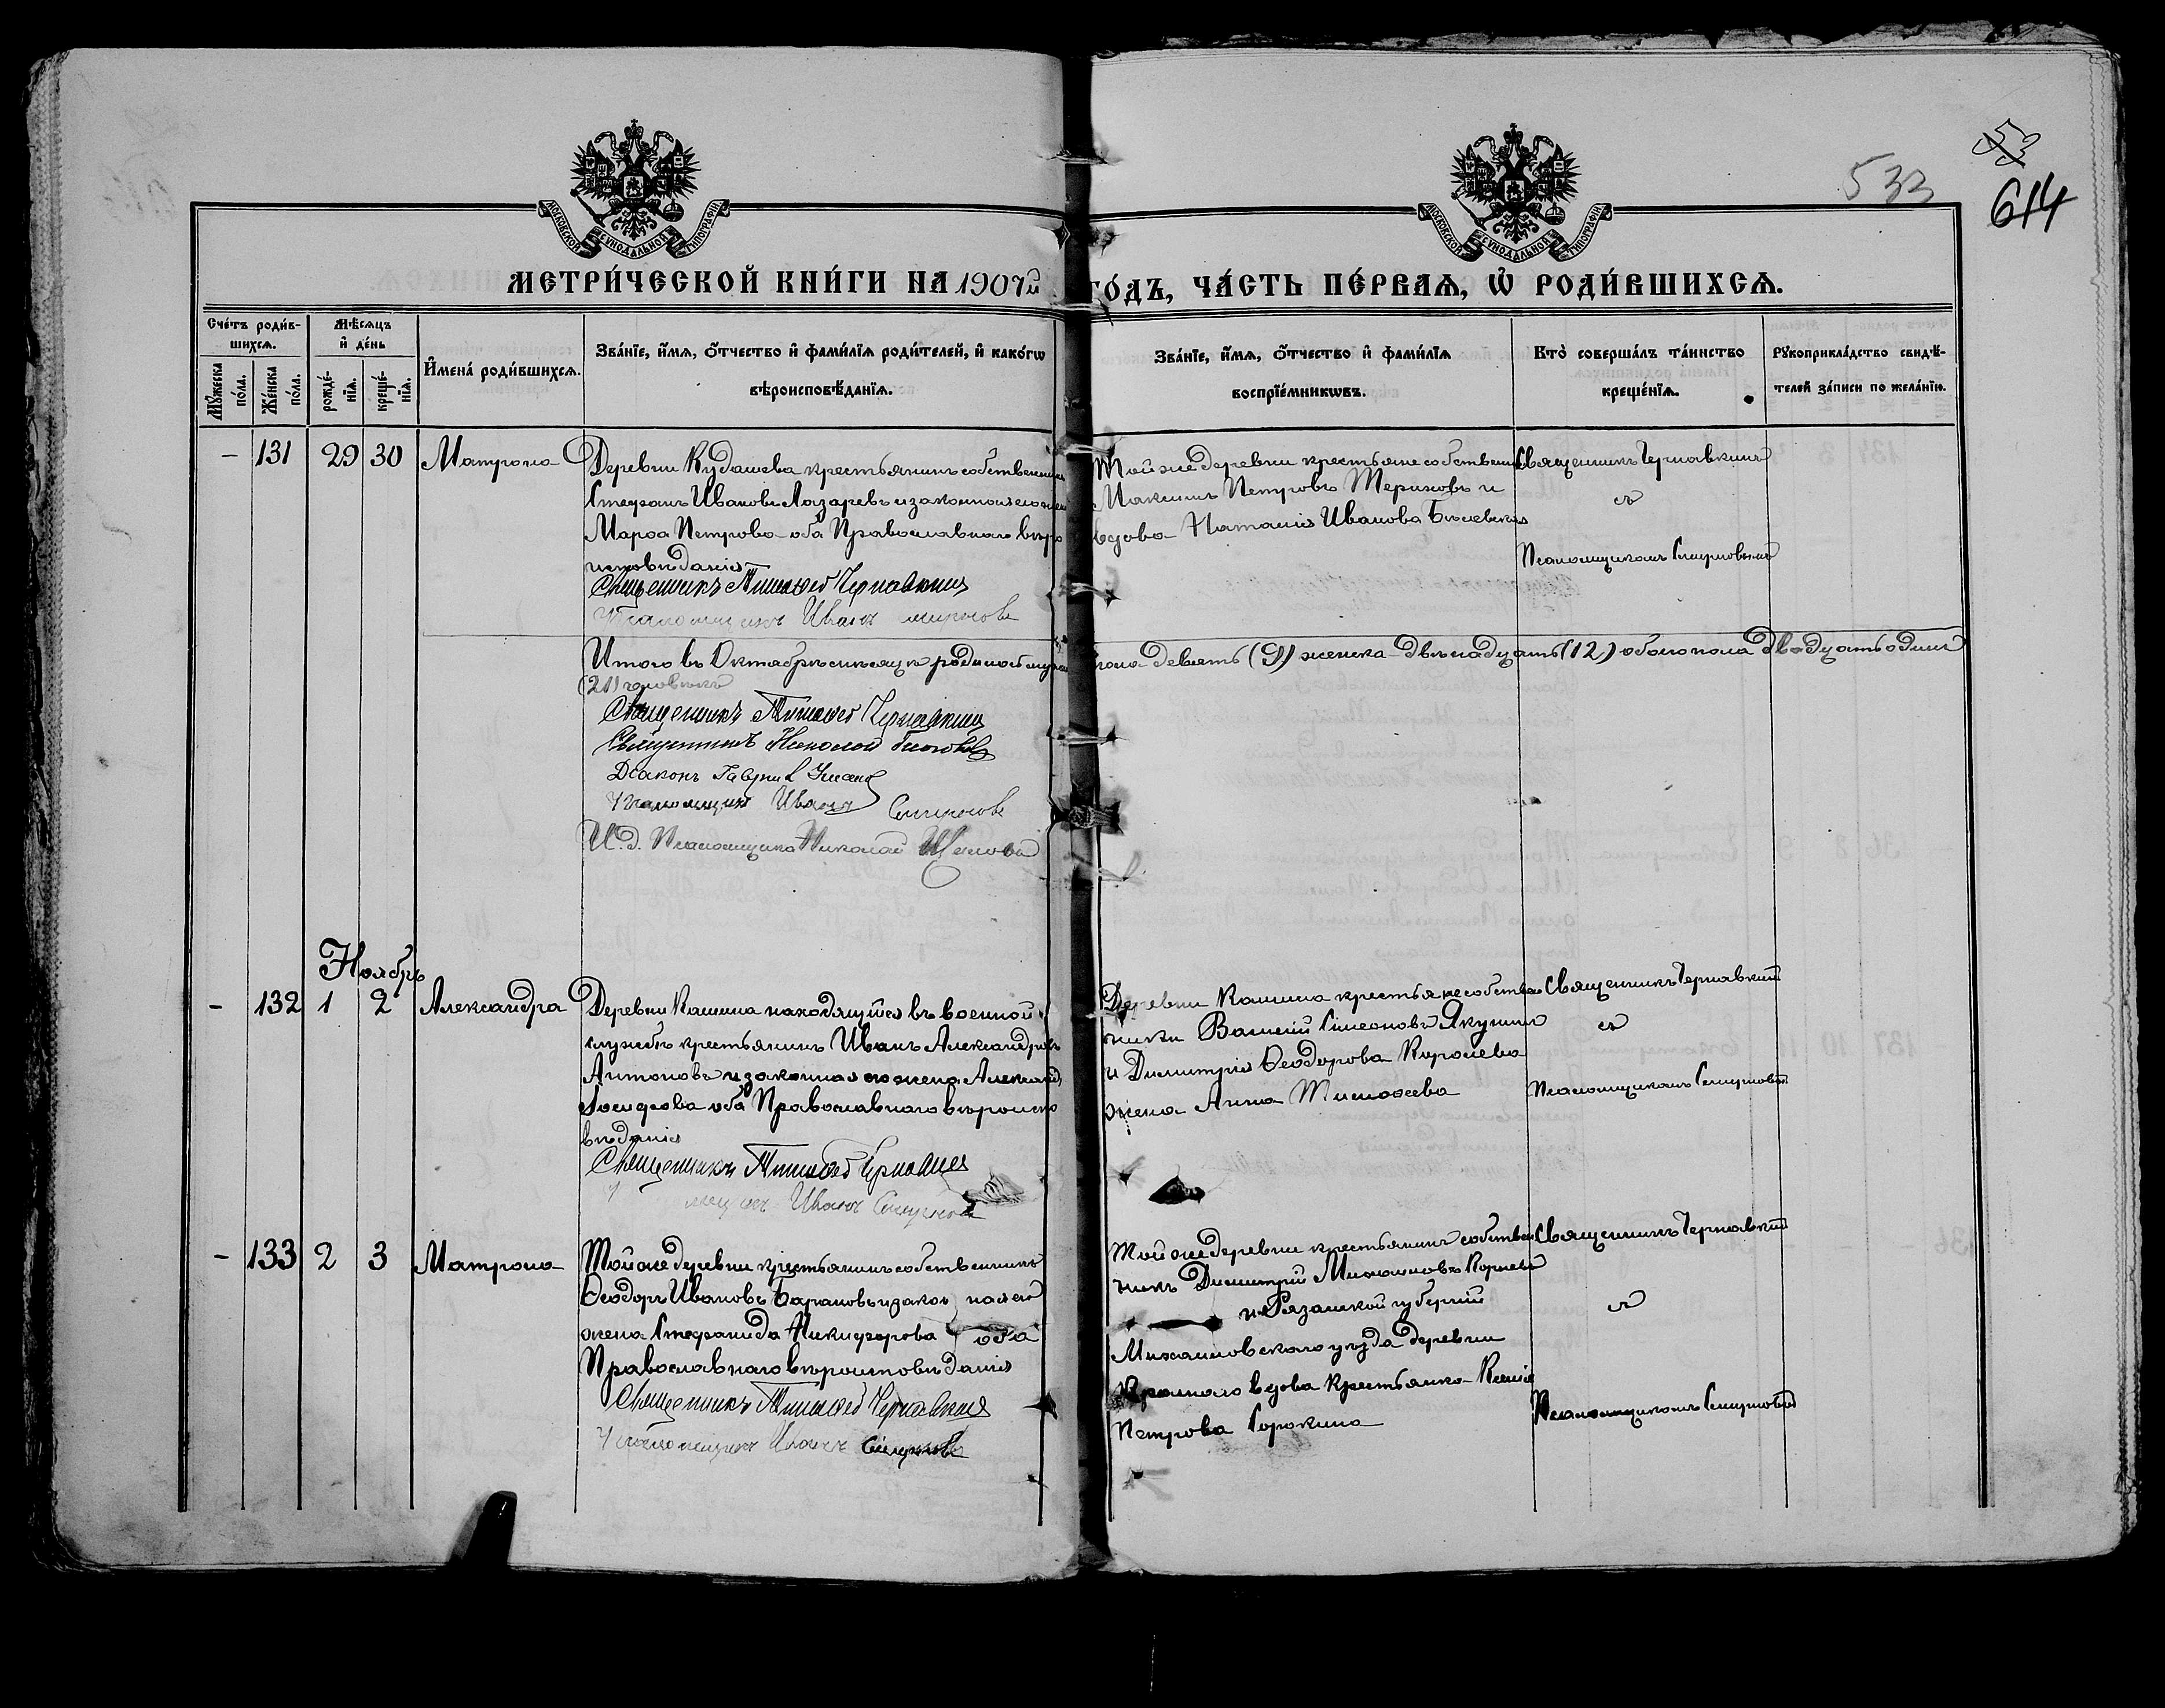 533
53
614
МОСКОВСКОЙ СУНОДАЛЬНОЙ ТИПОГРАФІИ
МОСКОВСКОЙ СУНОДАЛЬНОЙ ТИПОГРАФІИ
МЕТРИ́ЧЕСКОЙ КНИ́ГИ НА 1907й ГО́ДЪ, ЧА́СТЬ ПЕ́РВАѦ, Ѽ РОДИ́ВШИХСѦ.
Сче́тъ роди́в-
шихсѧ.
Мꙋ́жеска по́ла.
Же́нска по́ла.
Мѣ́сѧцъ
и҆ де́нь
рожде́-
нїѧ.
креще́-
нїѧ.
И҆мена̀ роди́вшихсѧ.
Зва́нїе, и҆́мѧ, ѻ҆́тчество и҆ фами́лїѧ роди́телей, и҆ како́гѡ
вѣроисповѣ́данїѧ.
Зва́нїе, и҆́мѧ, ѻ҆́тчество и҆ фами́лїѧ
воспрїе́мникѡвъ.
Кто̀ соверша́лъ та́инство
креще́нїѧ.
Рꙋкоприкла́дство свидѣ́-
телей за́писи по жела́нїю.
– 131 29 30 Матрона
Деревни Кудашева крестьянинъ собственникъ
Стефанъ Ивановъ Лазаревъ и законная его жена
Марѳа Петрова оба Православнаго вѣро
исповѣданія
Священникъ Тимоѳей Чернавкинъ
Псаломщикъ Иванъ Смирновъ
Той же деревни крестьяне собственники
Максимъ Петровъ Териховъ и
вдова Наталія Иванова
Священникъ Чернавкинъ
съ
Псаломщикомъ Смирновымъ
Итого въ Октябрѣ мѣсяцѣ родилось мужска
пола девять (9) женска двѣнадцать (12) обоего пола двадцать одинъ
(21) человѣкъ
Священникъ Тимоѳей Чернавкинъ
Священникъ Николай
Діаконъ Гавриил
Псаломщикъ Иванъ Смирновъ
И. д. Псаломщика Николай
Ноябрь
– 132 1 2 Александра
Деревни Кашина находящійся въ военной
службѣ крестьянинъ Иванъ Александровъ
Антоновъ и законная его жена Александра
Іосифова оба Православнаго вѣроиспо
вѣданія
Священникъ Тимоѳей Чернавкинъ
Иванъ Смирновъ
Деревни Кашина крестьяне собствен
ники Василій Симеоновъ Якунинъ
и Димитрія Ѳеодорова Королева
жена Анна Тимоѳеева
Священникъ Чернавкинъ
съ
Псаломщикомъ Смирновымъ
– 133 2 3 Матрона
Той же деревни крестьянинъ собственникъ
Ѳеодоръ Ивановъ Барановъ и законная его
жена Стефанида Никифорова оба
Православнаго вѣроисповѣданія
Священникъ Тимоѳей Чернавкинъ
Псаломщикъ Иванъ Смирновъ
Той же деревни крестьянинъ собствен
никъ Димитрій Михаиловъ
и Рязанской губерніи
Михаиловскаго уѣзда деревни
Краснаго вдова крестьянка Ксенія
Петрова Сорокина
Священникъ Чернавкинъ
съ
Псаломщикомъ Смирновымъ